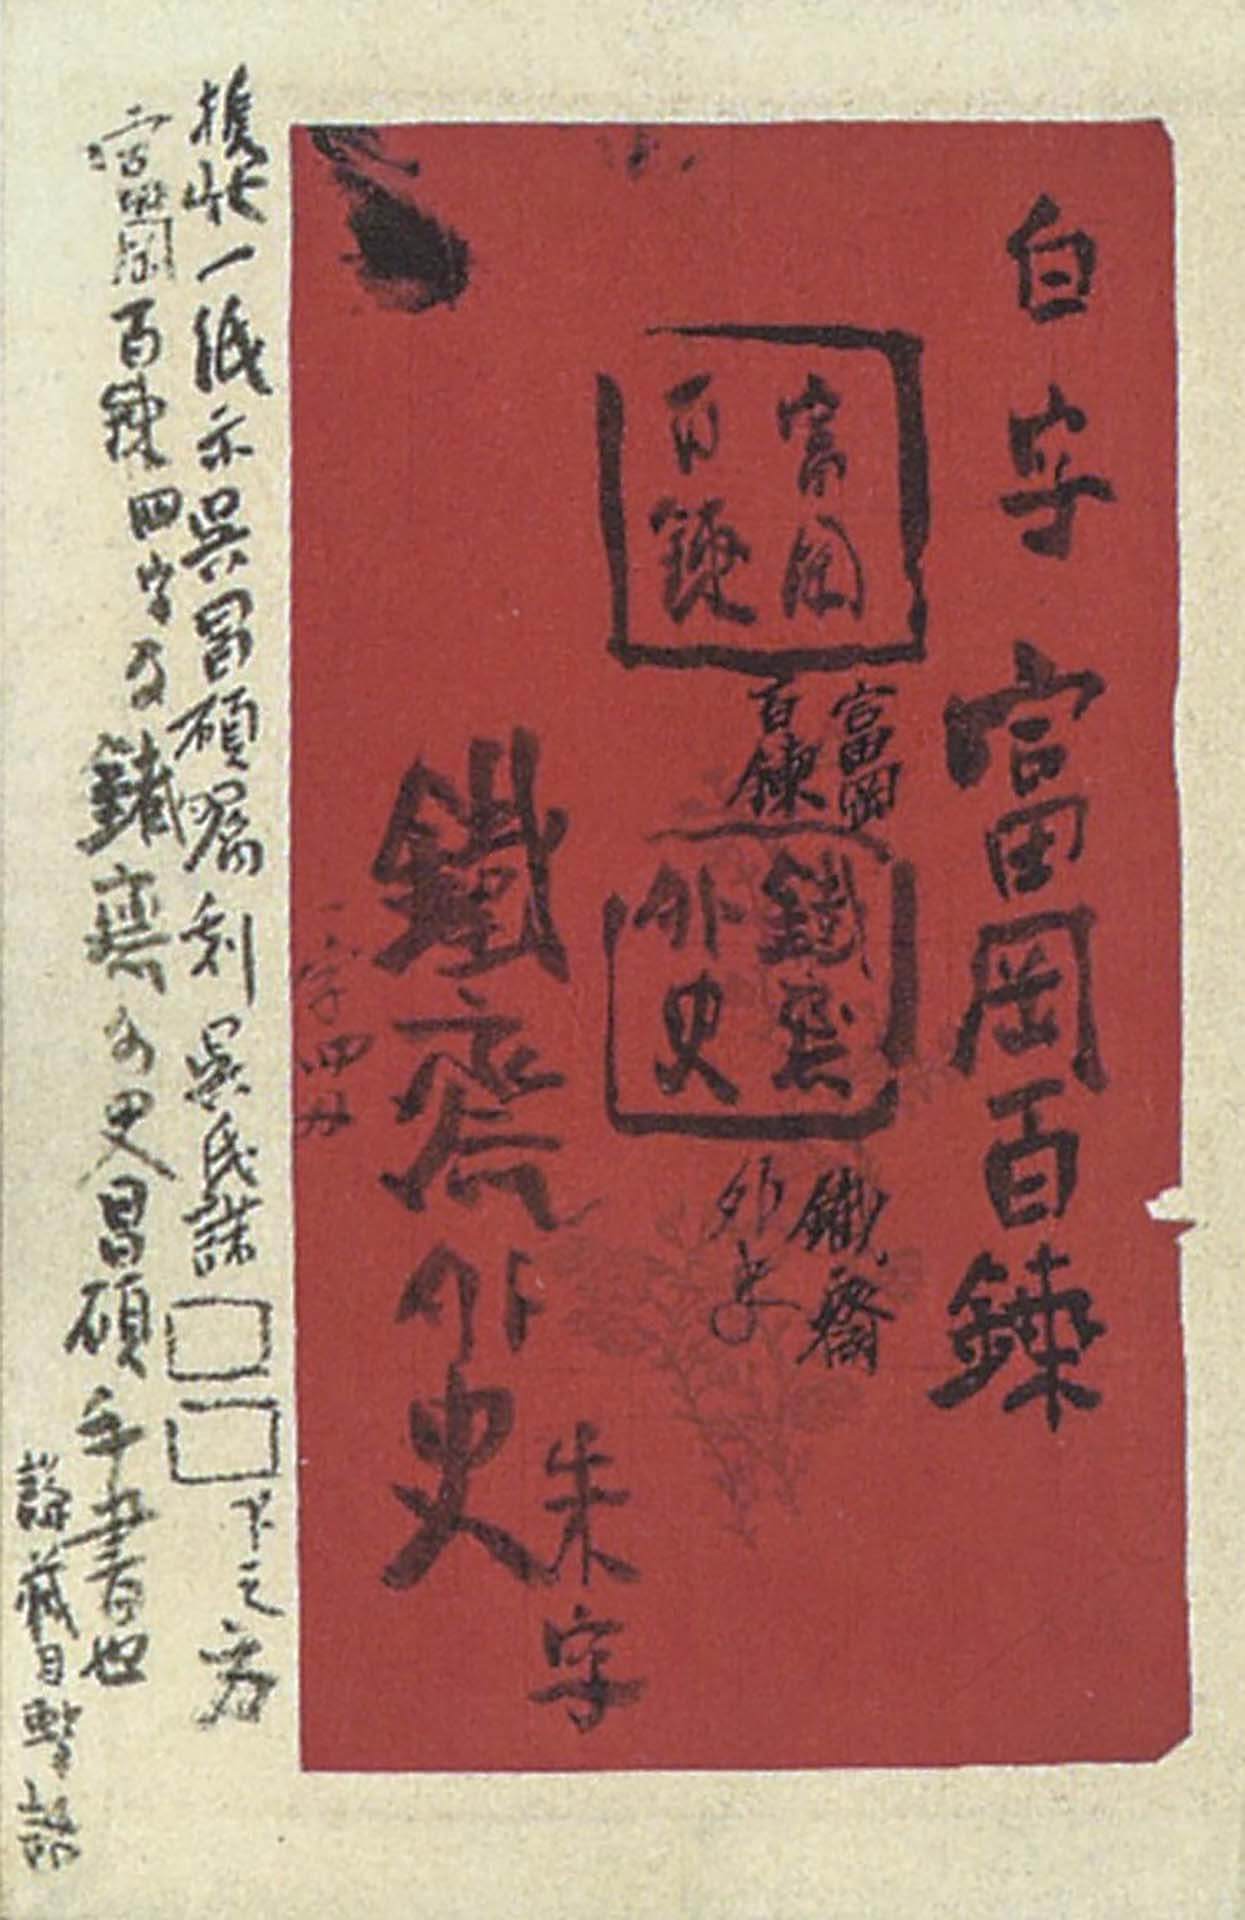 白字
富岡百錬
富岡
百錬
富岡
百錬
鐵齋
外史
鐵齋
外史
朱字
鐵齋外史
一字四丹
携此一紙示呉昌碩囑刻呉氏諾
下之方
富岡百錬四字及鐵齋外史昌碩手書也
謙藏目擊誌